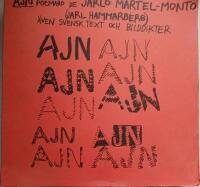 AJN POEMARO DE JARLO MARTEL-MONTO
(JARL HAMMARBERG)
ÄVEN SVENSK TEXT OCH BILDDIKTER
AJN AJN
AJN AJN
AJN AJN
AJN AJN
AJN AJN